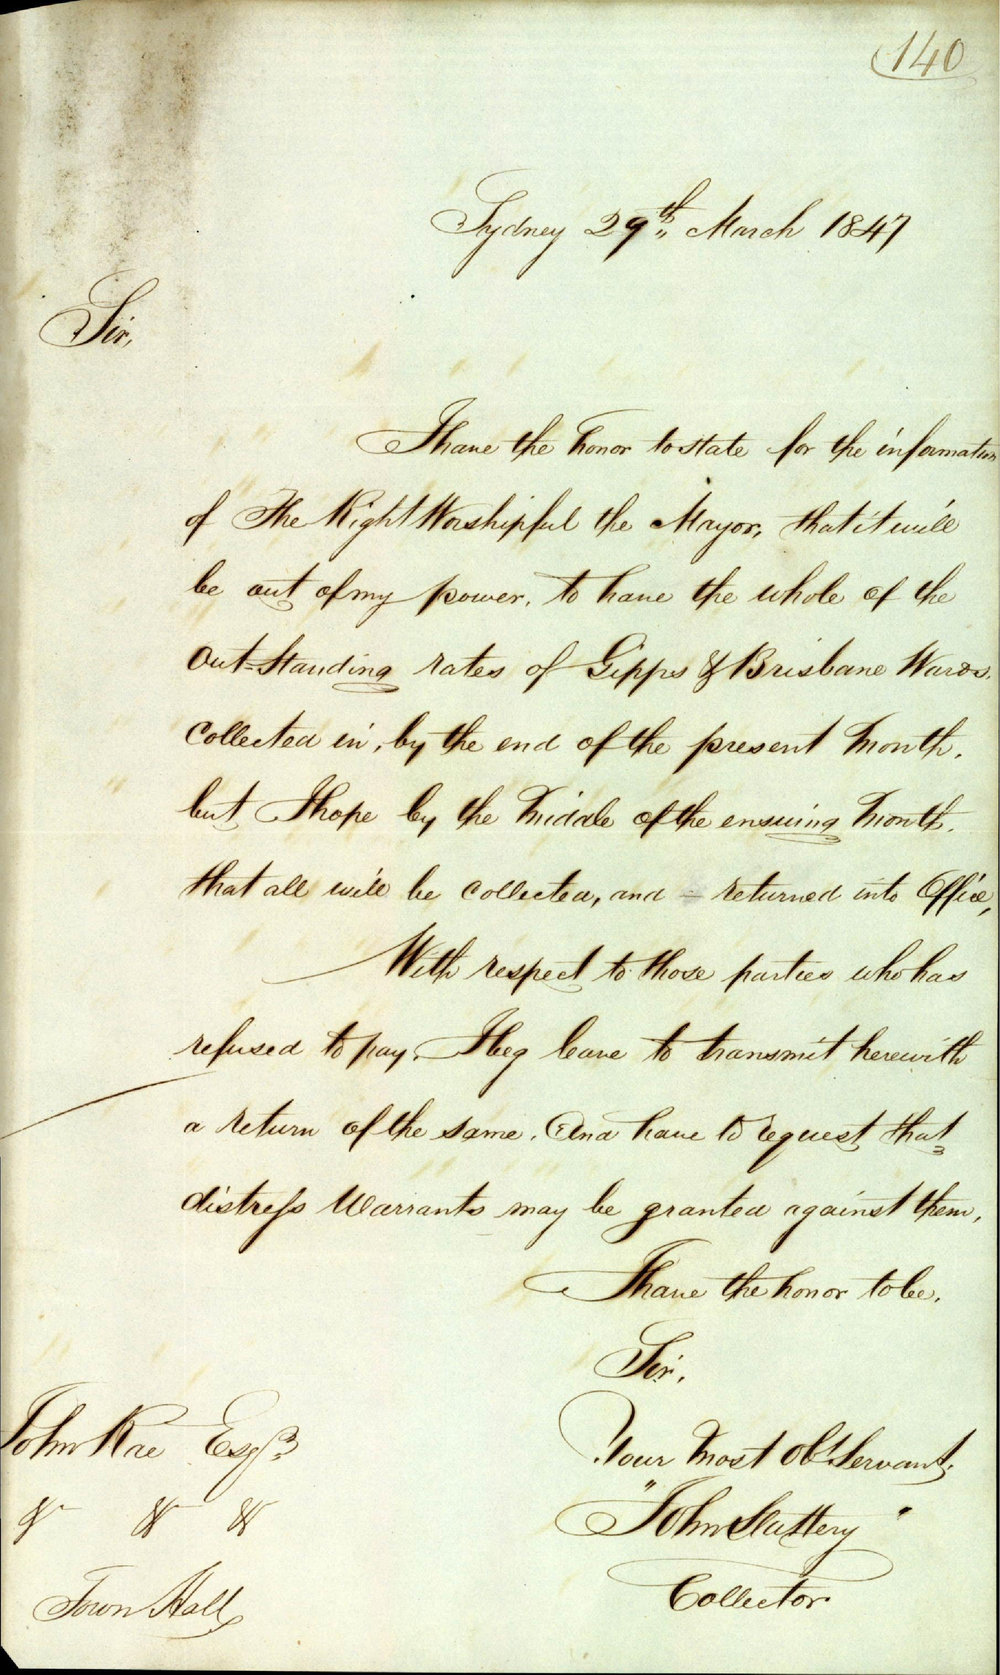 140
Sydney 29th March 1847
Sir,
I have the honor to state for the information
of The Right Worshipful the Mayor, that it will
be out of my power, to have the whole of the
Out=Standing rates of Gipps & Brisbane Wards.
Collected in, by the end of the present Month.
but I hope by the Middle of the ensuing Month.
that all will be Collected, and - returned into Office,
With respect to those parties who has
refused to pay. I beg leave to transmit herewith
a return of the same. And have to request that
distress Warrants may be granted against them,
I have the honor to be,
Sir,
Your Most Obt Servant,
"John Slattery"
Collector
John Rae Esqr.
& & &
Town Hall